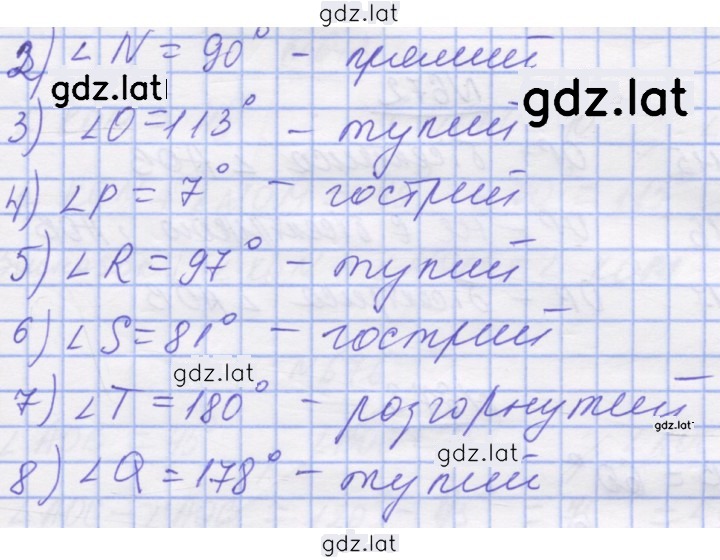 gdz.lat
2) ∠N = 90° - прямий
gdz.lat gdz.lat
3) ∠O = 113° - тупий
4) ∠P = 7° - гострий
5) ∠R = 97° - тупий
6) ∠S = 81° - гострий
gdz.lat
7) ∠T = 180° - розгорнутий
gdz.lat
gdz.lat
8) ∠Q = 178° - тупий
gdz.lat